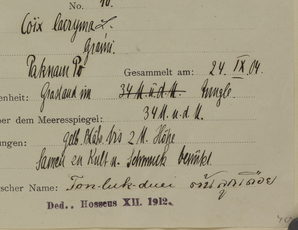 No. 10.
Coïx lacryma L.
Gramin.
Paknam Po Gesammelt am: 24. IX. 04.
enheit: Grasland im Dungle.
ber dem Meeresspiegel: 34 M. u. d. M.
ungen: gelb. bis 2 M. Höhe
Samen zu Kult u. Schmuck benützt
scher Name: Ton-luk-duei ต้นลูกเดือย
Ded.. Hosseus XII. 1912.